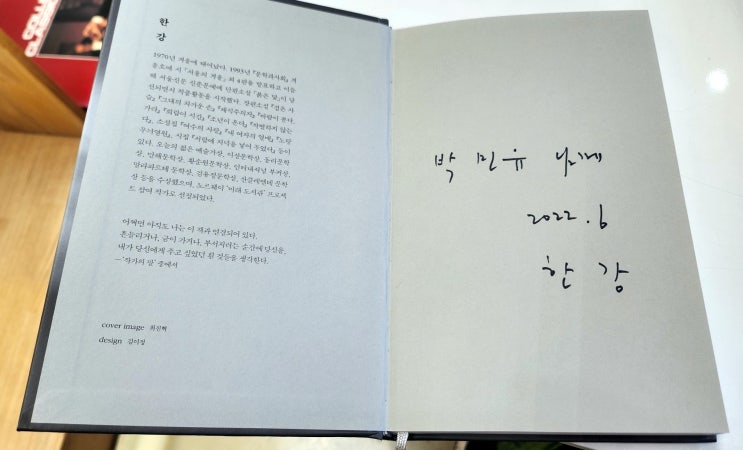 한
강
1970년 겨울에 태어났다. 1993년 『문학과사회』 겨
울호에 시 「서울의 겨울」 외 4편을 발표하고 이듬
해 서울신문 신춘문예에 단편소설 「붉은 닻」이 당
선되면서 작품활동을 시작했다. 장편소설 『검은 사
슴』 『그대의 차가운 손』 『채식주의자』 『바람이 분다,
가라』 『희랍어 시간』 『소년이 온다』 『작별하지 않는
다』, 소설집 『여수의 사랑』 『내 여자의 열매』 『노랑
무늬영원』, 시집 『서랍에 저녁을 넣어 두었다』 등이
있다. 오늘의 젊은 예술가상, 이상문학상, 동리문학
상, 만해문학상, 황순원문학상, 인터내셔널 부커상,
말라파르테 문학상, 김유정문학상, 산클레멘테 문학
상 등을 수상했으며, 노르웨이 '미래 도서관' 프로젝
트 참여 작가로 선정되었다.
어쩌면 아직도 나는 이 책과 연결되어 있다.
흔들리거나, 금이 가거나, 부서지려는 순간에 당신을,
내가 당신에게 주고 싶었던 흰 것들을 생각한다.
—'작가의 말' 중에서
cover image 최진혁
design 김이정
박 민유 님께
2022. 6
한 강